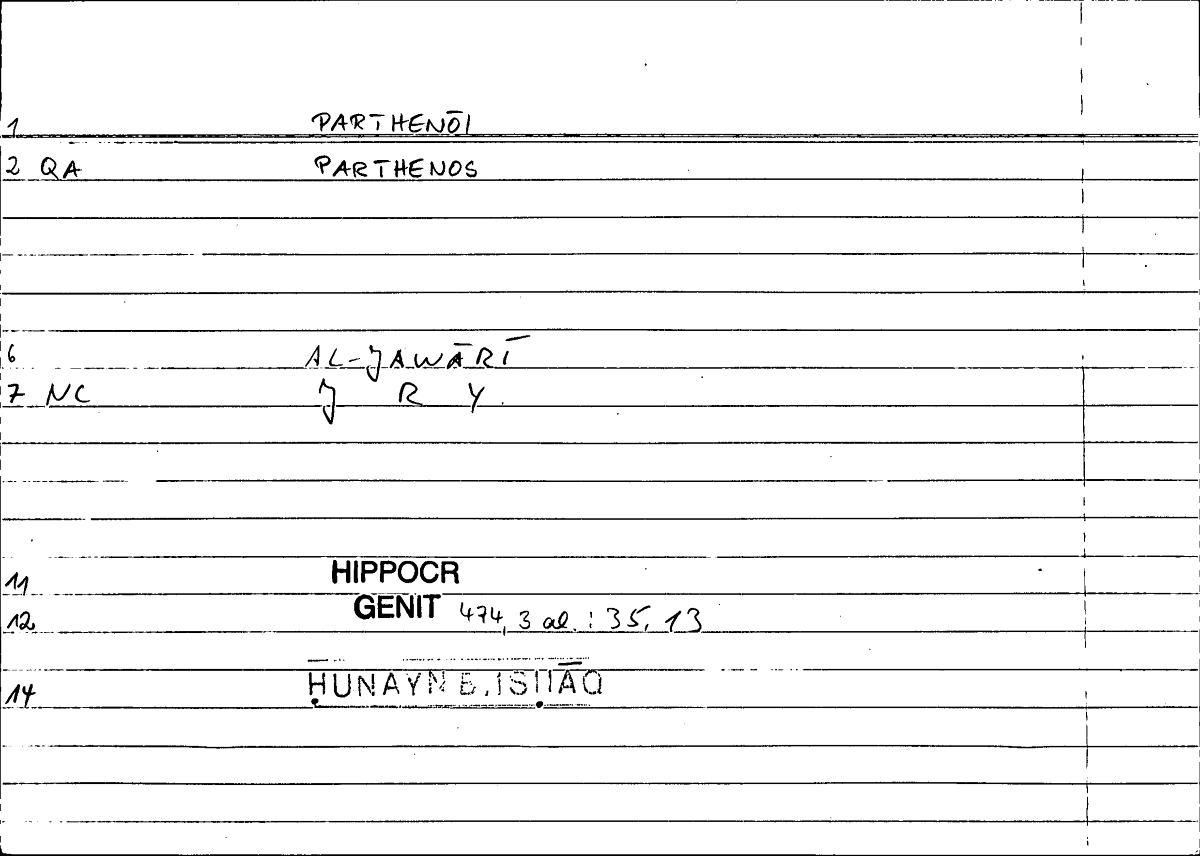 1 PARTHENŌI
2 QA PARTHENOS
6 AL-JAWĀRĪ
7 NC J R Y
11 HIPPOCR
12 GENIT 474, 3 al. : 35, 13
14 ḤUNAYN B. ISḤĀQ